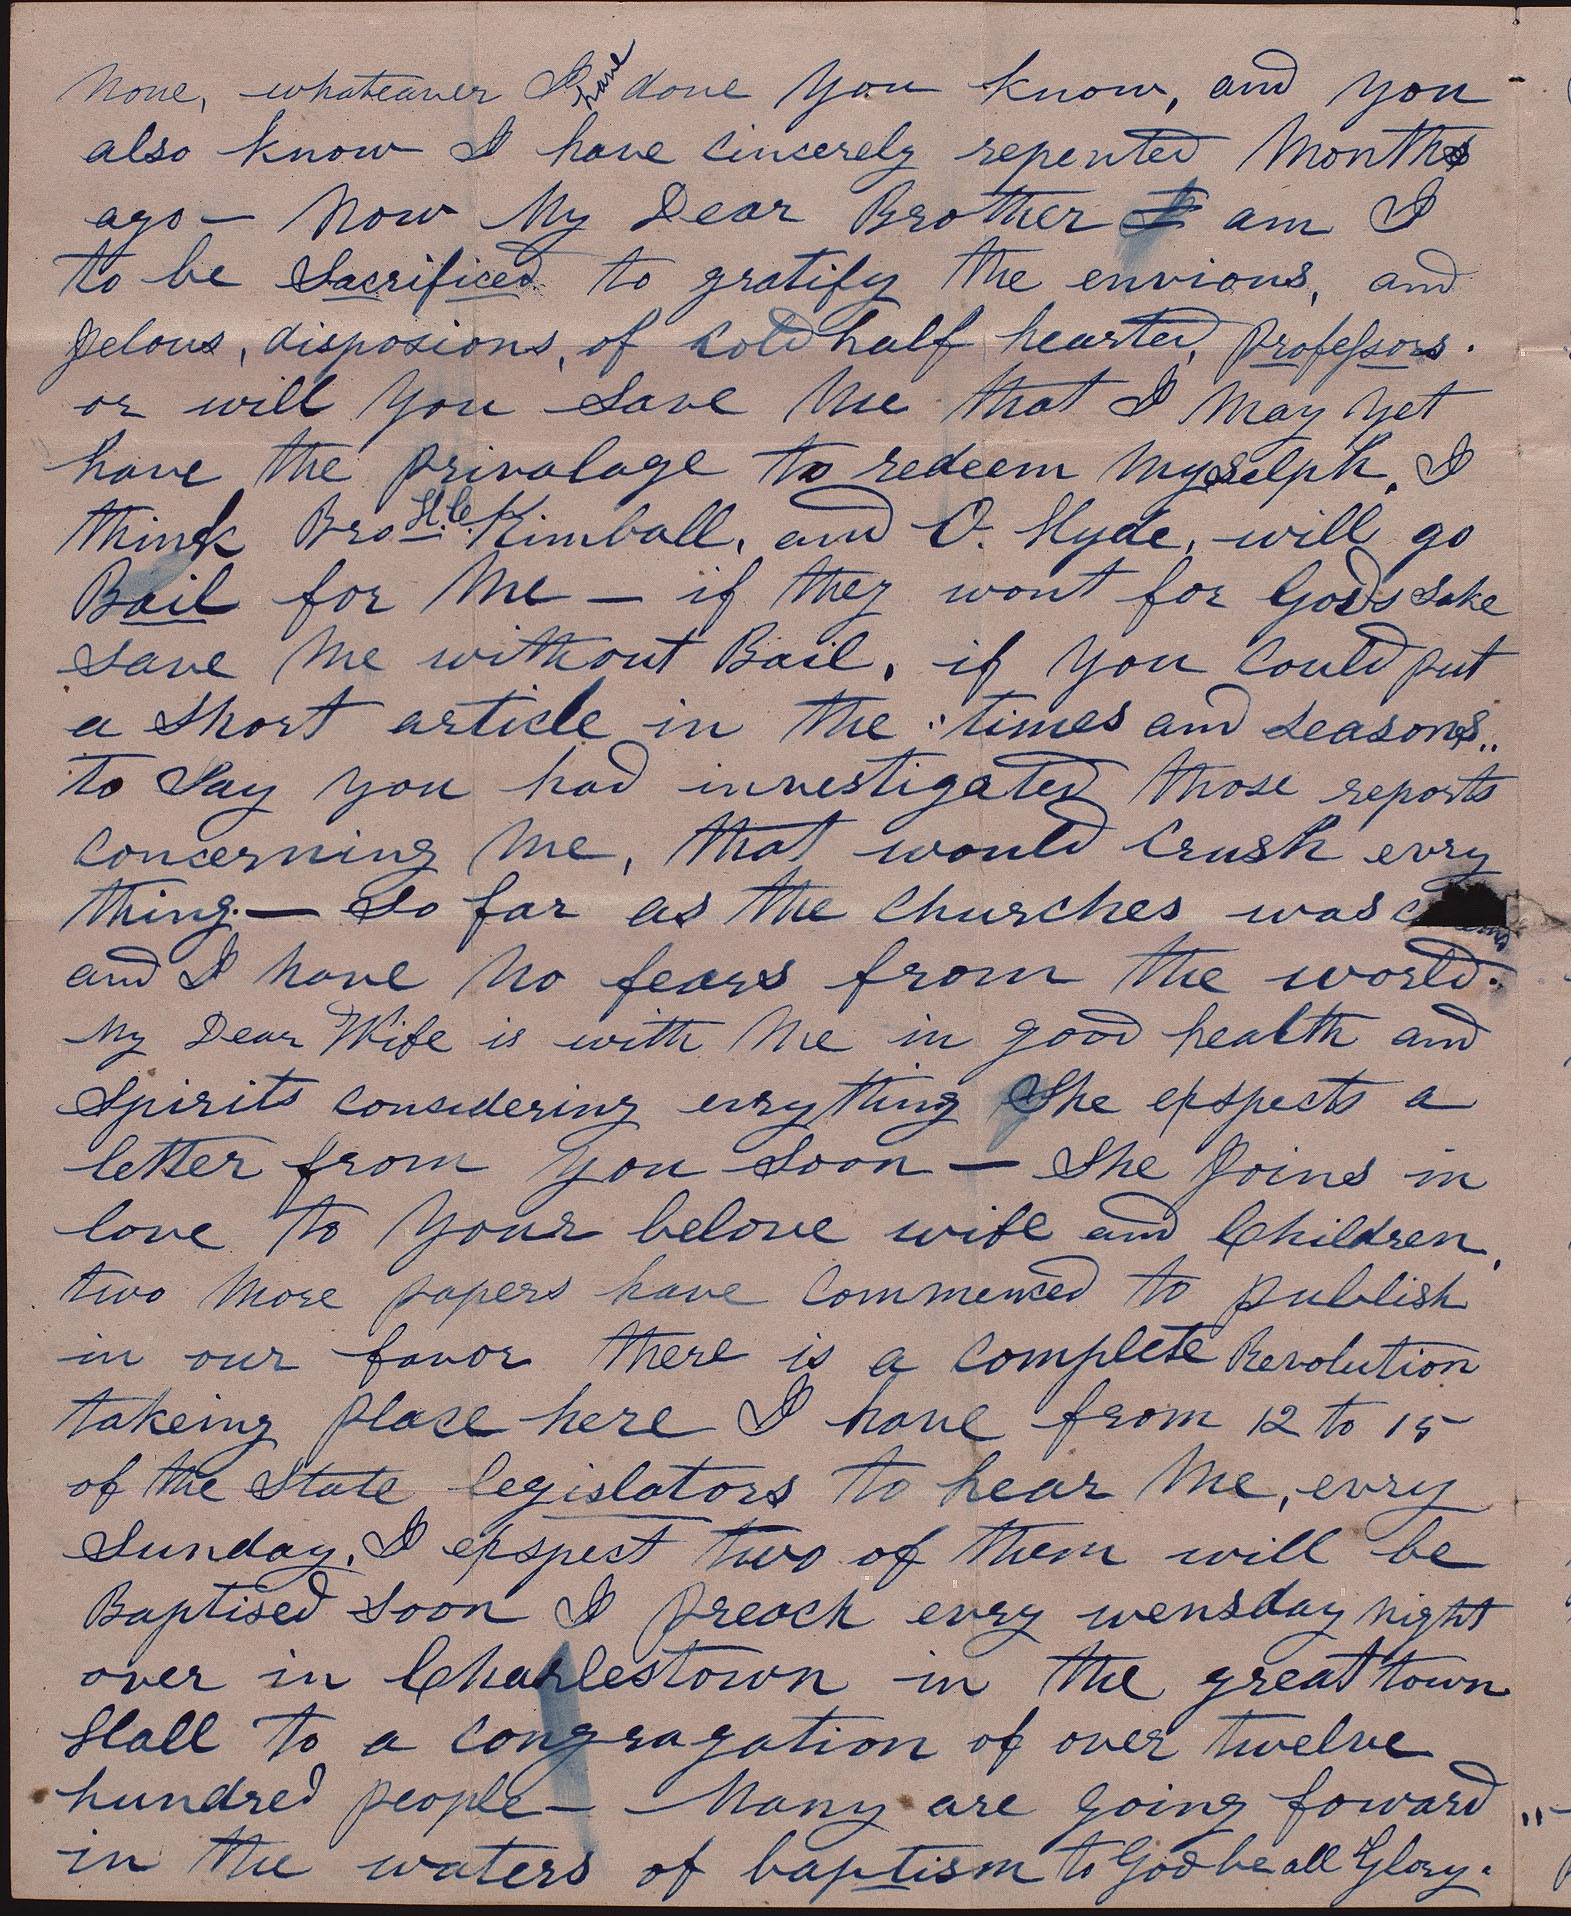 None, whateaver I have done you know, and you
also know I have cincerely repented Months
ago— Now My Dear Brother I am I
to be Sacrificed to gratify the envious, and
Jelous, disposions, of cold half hearted, professors.
or will you Save Me that I May yet
have the privalage to redeem Myselph, I
think Bro H. C. Kimball, and O. Hyde, will go
Bail for Me — if they wont for Gods Sake
Save Me without Bail, if you could put
a Short article in the "times and seasons"
to Say you had investigated those reports
concerning Me, that would Crush evry
thing.— So far as the Churches was
and I have No fears from the world.
My Dear Wife is with Me in good health and
Spirits considering evrything She expspects a
letter from you Soon — She Joins in
love to your belove wife and Children,
two More papers have commenced to publish
in our favor there is a complete Revolution
takeing place here I have from 12 to 15
of the State legislators to hear Me, evry
Sunday, I expspect two of them will be
Baptised Soon I preach evry wensday Night
over in Charlestown in the great town
Hall to a congragation of over twelve
hundred people — Many are going foward
in the waters of baptism to God be all Glory.